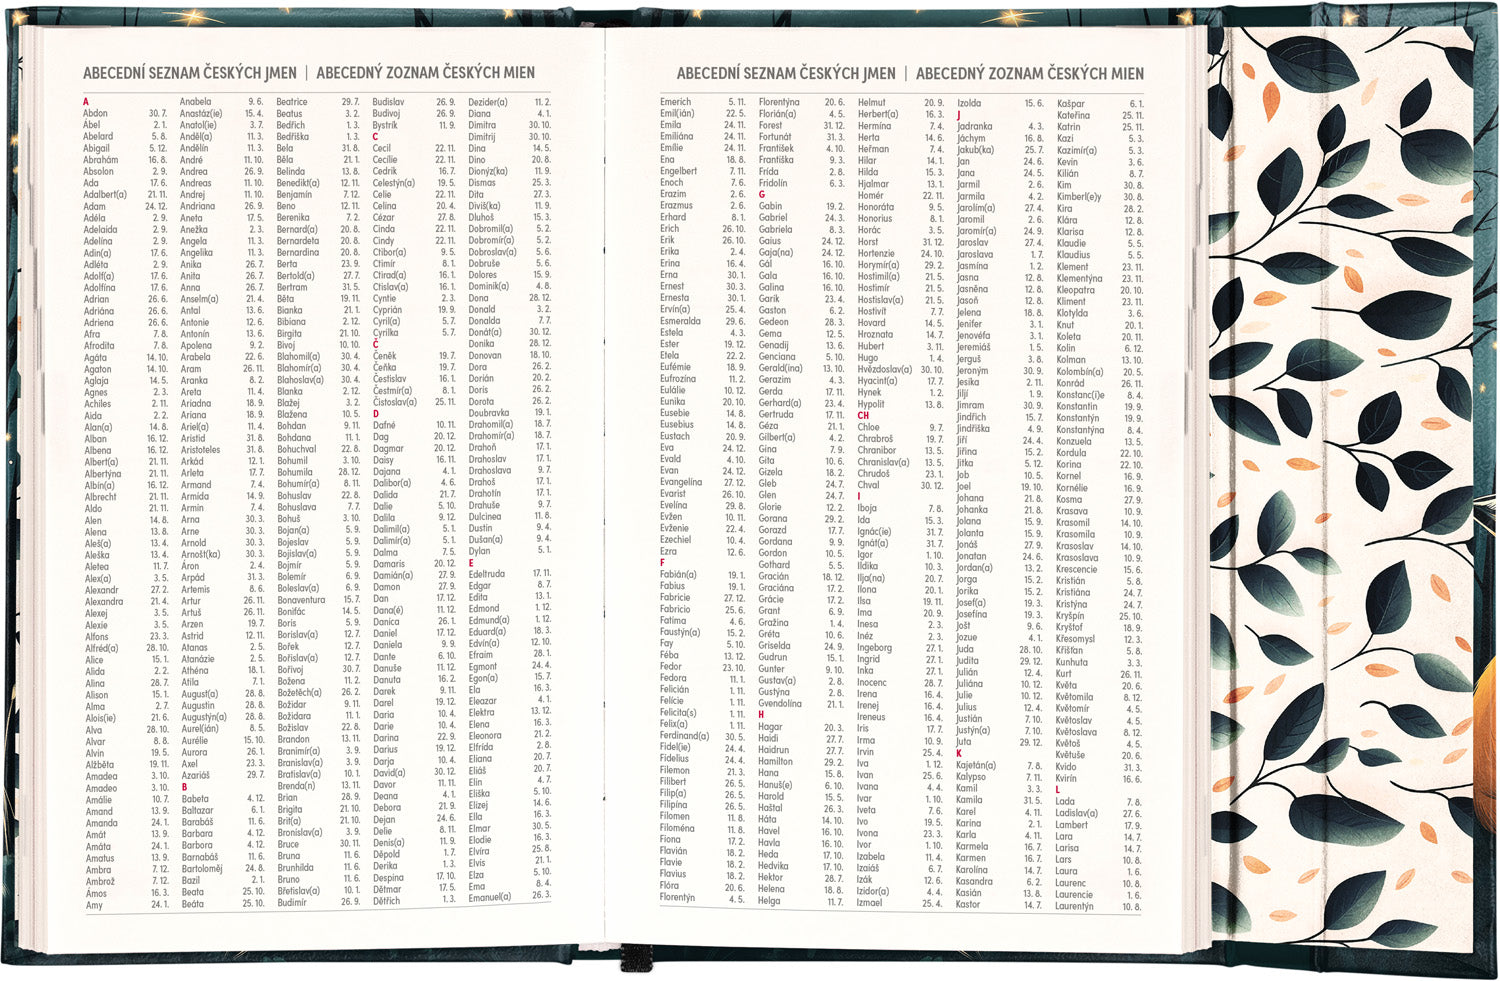 ABECEDNÍ SEZNAM ČESKÝCH JMEN | ABECEDNÝ ZOZNAM ČESKÝCH MIEN
A
Abdon 30. 7.
Ábel 2. 1.
Abelard 5. 8.
Abigail 5. 12.
Abrahám 16. 8.
Absolon 2. 9.
Ada 17. 6.
Adalbert(a) 21. 11.
Adam 24. 12.
Adéla 2. 9.
Adelaida 2. 9.
Adelína 2. 9.
Adin(a) 17. 6.
Adléta 2. 9.
Adolf(a) 17. 6.
Adolfína 17. 6.
Adrian 26. 6.
Adriána 26. 6.
Adriena 26. 6.
Afra 7. 8.
Afrodita 7. 8.
Agáta 14. 10.
Agaton 14. 10.
Aglaja 14. 5.
Agnes 2. 3.
Achiles 2. 11.
Aida 2. 2.
Alan(a) 14. 8.
Alban 16. 12.
Albena 16. 12.
Albert(a) 21. 11.
Albertýna 21. 11.
Albín(a) 16. 12.
Albrecht 21. 11.
Aldo 21. 11.
Alen 14. 8.
Alena 13. 8.
Aleš(a) 13. 4.
Aleška 13. 4.
Aletea 11. 7.
Alex(a) 3. 5.
Alexandr 27. 2.
Alexandra 21. 4.
Alexej 3. 5.
Alexie 3. 5.
Alfons 23. 3.
Alfréd(a) 28. 10.
Alice 15. 1.
Alida 2. 2.
Alina 28. 7.
Alison 15. 1.
Alma 2. 7.
Alois(ie) 21. 6.
Alva 28. 10.
Alvar 8. 8.
Alvin 19. 5.
Alžběta 19. 11.
Amadea 3. 10.
Amadeo 3. 10.
Amálie 10. 7.
Amand 13. 9.
Amanda 24. 1.
Amát 13. 9.
Amáta 24. 1.
Amatus 13. 9.
Ambra 7. 12.
Ambrož 7. 12.
Ámos 16. 3.
Amy 24. 1.
Anabela 9. 6.
Anastáz(ie) 15. 4.
Anatol(ie) 3. 7.
Anděl(a) 11. 3.
Andělín 11. 3.
André 11. 10.
Andrea 26. 9.
Andreas 11. 10.
Andrej 11. 10.
Andriana 26. 9.
Aneta 17. 5.
Anežka 2. 3.
Angela 11. 3.
Angelika 11. 3.
Anika 26. 7.
Anita 26. 7.
Anna 26. 7.
Anselm(a) 21. 4.
Antal 13. 6.
Antonie 12. 6.
Antonín 13. 6.
Apolena 9. 2.
Arabela 22. 6.
Aram 26. 11.
Aranka 8. 2.
Areta 11. 4.
Ariadna 18. 9.
Ariana 18. 9.
Ariel(a) 11. 4.
Aristid 31. 8.
Aristoteles 31. 8.
Arkád 12. 1.
Arleta 17. 7.
Armand 7. 4.
Armida 14. 9.
Armin 7. 4.
Arna 30. 3.
Arne 30. 3.
Arnold 30. 3.
Arnošt(ka) 30. 3.
Áron 2. 4.
Arpád 31. 3.
Artemis 8. 6.
Artur 26. 11.
Artuš 26. 11.
Arzen 19. 7.
Astrid 12. 11.
Atanas 2. 5.
Atanázie 2. 5.
Athéna 18. 1.
Atila 7. 1.
August(a) 28. 8.
Augustin 28. 8.
Augustýn(a) 28. 8.
Aurel(ián) 8. 5.
Aurélie 15. 10.
Aurora 26. 1.
Axel 23. 3.
Azariáš 29. 7.
B
Babeta 4. 12.
Baltazar 6. 1.
Barabáš 11. 6.
Barbara 4. 12.
Barbora 4. 12.
Barnabáš 11. 6.
Bartoloměj 24. 8.
Bazil 2. 1.
Beata 25. 10.
Beáta 25. 10.
Beatrice 29. 7.
Beatus 3. 2.
Bedřich 1. 3.
Bedřiška 1. 3.
Bela 31. 8.
Běla 21. 1.
Belinda 13. 8.
Benedikt(a) 12. 11.
Benjamín 7. 12.
Beno 12. 11.
Berenika 7. 2.
Bernard(a) 20. 8.
Bernardeta 20. 8.
Bernardina 20. 8.
Berta 23. 9.
Bertold(a) 27. 7.
Bertram 31. 5.
Běta 19. 11.
Bianka 21. 1.
Bibiana 2. 12.
Birgita 21. 10.
Bivoj 10. 10.
Blahomil(a) 30. 4.
Blahomír(a) 30. 4.
Blahoslav(a) 30. 4.
Blanka 2. 12.
Blažej 3. 2.
Blažena 10. 5.
Bohdan 9. 11.
Bohdana 11. 1.
Bohuchval 22. 8.
Bohumil 3. 10.
Bohumila 28. 12.
Bohumír(a) 8. 11.
Bohuslav 22. 8.
Bohuslava 7. 7.
Bohuš 3. 10.
Bojan(a) 5. 9.
Bojeslav 5. 9.
Bojislav(a) 5. 9.
Bojmír 5. 9.
Bolemír 6. 9.
Boleslav(a) 6. 9.
Bonaventura 15. 7.
Bonifác 14. 5.
Boris 5. 9.
Borislav(a) 12. 7.
Bořek 12. 7.
Bořislav(a) 12. 7.
Bořivoj 30. 7.
Božena 11. 2.
Božetěch(a) 26. 2.
Božidar 9. 11.
Božidara 11. 1.
Božislav 22. 8.
Brandon 13. 11.
Branimír(a) 3. 9.
Branislav(a) 3. 9.
Bratislav(a) 10. 1.
Brenda(n) 13. 11.
Brian 28. 9.
Brigita 21. 10.
Brit(a) 21. 10.
Bronislav(a) 3. 9.
Bruce 30. 11.
Bruna 11. 6.
Brunhilda 11. 6.
Bruno 11. 6.
Břetislav(a) 10. 1.
Budimír 26. 9.
Budislav 26. 9.
Budivoj 26. 9.
Bystrík 11. 9.
C
Cecil 22. 11.
Cecílie 22. 11.
Cedrik 16. 7.
Celestýn(a) 19. 5.
Celie 22. 11.
Celina 20. 4.
Cézar 27. 8.
Cinda 22. 11.
Cindy 22. 11.
Ctibor(a) 9. 5.
Ctimír 8. 1.
Ctirad(a) 16. 1.
Ctislav(a) 16. 1.
Cyntie 2. 3.
Cyprián 19. 9.
Cyril(a) 5. 7.
Cyrilka 5. 7.
Č
Čeněk 19. 7.
Čeňka 19. 7.
Čestislav 16. 1.
Čestmír(a) 8. 1.
Čistoslav(a) 25. 11.
D
Dafné 10. 11.
Dag 20. 12.
Dagmar 20. 12.
Daisy 16. 11.
Dajana 4. 1.
Dalibor(a) 4. 6.
Dalida 21. 7.
Dalie 5. 10.
Dalila 9. 12.
Dalimil(a) 5. 1.
Dalimír(a) 5. 1.
Dalma 7. 5.
Damaris 20. 12.
Damián(a) 27. 9.
Damon 27. 9.
Dan 17. 12.
Dana(é) 11. 12.
Danica 26. 1.
Daniel 17. 12.
Daniela 9. 9.
Dante 6. 10.
Danuše 11. 12.
Danuta 16. 2.
Darek 9. 11.
Darel 19. 12.
Daria 10. 4.
Darie 10. 4.
Darina 22. 9.
Darius 19. 12.
Darja 10. 4.
David(a) 30. 12.
Davor 11. 11.
Deana 4. 1.
Debora 21. 9.
Dejan 24. 6.
Delie 8. 11.
Denis(a) 11. 9.
Děpold 1. 7.
Derika 1. 3.
Despina 17. 10.
Dětmar 17. 5.
Dětřich 1. 3.
Dezider(a) 11. 2.
Diana 4. 1.
Dimitra 30. 10.
Dimitrij 30. 10.
Dina 14. 5.
Dino 20. 8.
Dionýz(ka) 11. 9.
Dismas 25. 3.
Dita 27. 3.
Diviš(ka) 11. 9.
Dluhoš 15. 3.
Dobromil(a) 5. 2.
Dobromír(a) 5. 2.
Dobroslav(a) 5. 6.
Dobruše 5. 6.
Dolores 15. 9.
Dominik(a) 4. 8.
Dona 28. 12.
Donald 3. 2.
Donalda 7. 7.
Donát(a) 30. 12.
Donika 28. 12.
Donovan 18. 10.
Dora 26. 2.
Dorián 20. 2.
Doris 26. 2.
Dorota 26. 2.
Doubravka 19. 1.
Drahomil(a) 18. 7.
Drahomír(a) 18. 7.
Drahoň 17. 1.
Drahoslav 17. 1.
Drahoslava 9. 7.
Drahoš 17. 1.
Drahotín 17. 1.
Drahuše 9. 7.
Dulcinea 11. 8.
Dustin 9. 4.
Dušan(a) 9. 4.
Dylan 5. 1.
E
Edeltruda 17. 11.
Edgar 8. 7.
Edita 13. 1.
Edmond 1. 12.
Edmund(a) 1. 12.
Eduard(a) 18. 3.
Edvin(a) 12. 10.
Efraim 28. 1.
Egmont 24. 4.
Egon(a) 15. 7.
Ela 16. 3.
Eleazar 4. 1.
Elektra 13. 12.
Elena 16. 3.
Eleonora 21. 2.
Elfrída 2. 8.
Eliana 20. 7.
Eliáš 20. 7.
Elin 4. 7.
Eliška 5. 10.
Elizej 14. 6.
Ella 16. 3.
Elmar 30. 5.
Elodie 16. 3.
Elvíra 25. 8.
Elvis 21. 1.
Elza 5. 10.
Ema 8. 4.
Emanuel(a) 26. 3.
ABECEDNÍ SEZNAM ČESKÝCH JMEN | ABECEDNÝ ZOZNAM ČESKÝCH MIEN
Emerich 5. 11.
Emil(ián) 22. 5.
Emila 24. 11.
Emiliána 24. 11.
Emílie 24. 11.
Ena 18. 8.
Engelbert 7. 11.
Enoch 7. 6.
Erazim 2. 6.
Erazmus 2. 6.
Erhard 8. 1.
Erich 26. 10.
Erik 26. 10.
Erika 2. 4.
Erina 16. 4.
Erna 30. 1.
Ernest 30. 3.
Ernesta 30. 1.
Ervín(a) 25. 4.
Esmeralda 29. 6.
Estela 4. 3.
Ester 19. 12.
Etela 22. 2.
Eufémie 18. 9.
Eufrozína 11. 2.
Eulálie 10. 12.
Eunika 20. 10.
Eusebie 14. 8.
Eusebius 14. 8.
Eustach 20. 9.
Eva 24. 12.
Evald 4. 10.
Evan 24. 12.
Evangelína 27. 12.
Evarist 26. 10.
Evelína 29. 8.
Evžen 10. 11.
Evženie 22. 4.
Ezechiel 10. 4.
Ezra 12. 6.
F
Fabián(a) 19. 1.
Fabius 19. 1.
Fabricie 27. 12.
Fabricio 25. 6.
Fatima 4. 6.
Faustýn(a) 15. 2.
Fay 5. 10.
Féba 13. 12.
Fedor 23. 10.
Fedora 11. 1.
Felicián 1. 11.
Felície 1. 11.
Felicita(s) 1. 11.
Felix(a) 1. 11.
Ferdinand(a) 30. 5.
Fidel(ie) 24. 4.
Fidelius 24. 4.
Filemon 21. 3.
Filibert 26. 5.
Filip(a) 26. 5.
Filipína 26. 5.
Filomen 11. 8.
Filoména 11. 8.
Fiona 17. 2.
Flavián 18. 2.
Flavie 18. 2.
Flavius 18. 2.
Flóra 20. 6.
Florentýn 4. 5.
Florentýna 20. 6.
Florián(a) 4. 5.
Forest 31. 12.
Fortunát 31. 3.
František 4. 10.
Františka 9. 3.
Frída 2. 8.
Fridolín 6. 3.
G
Gabin 19. 2.
Gabriel 24. 3.
Gabriela 8. 3.
Gaius 24. 12.
Gaja(na) 24. 12.
Gál 16. 10.
Gala 16. 10.
Galina 16. 10.
Garik 23. 4.
Gaston 6. 2.
Gedeon 28. 3.
Gema 12. 5.
Genadij 13. 6.
Genciana 5. 10.
Gerald(ina) 13. 10.
Gerazim 4. 3.
Gerda 17. 11.
Gerhard(a) 23. 4.
Gertruda 17. 11.
Géza 21. 1.
Gilbert(a) 4. 2.
Gina 7. 9.
Gita 10. 6.
Gizela 18. 2.
Gleb 24. 7.
Glen 24. 7.
Glorie 12. 2.
Gorana 29. 2.
Gorazd 17. 7.
Gordana 9. 9.
Gordon 10. 5.
Gothard 5. 5.
Gracián 18. 12.
Graciána 17. 2.
Grácie 17. 2.
Grant 6. 9.
Gražina 1. 4.
Gréta 10. 6.
Griselda 24. 9.
Gudrun 15. 1.
Gunter 9. 10.
Gustav(a) 2. 8.
Gustýna 2. 8.
Gvendolína 21. 1.
H
Hagar 20. 3.
Haidi 27. 7.
Haidrun 27. 7.
Hamilton 29. 2.
Hana 15. 8.
Hanuš(e) 6. 10.
Harold 15. 5.
Haštal 26. 3.
Háta 14. 10.
Havel 16. 10.
Havla 16. 10.
Heda 17. 10.
Hedvika 17. 10.
Hektor 28. 7.
Helena 18. 8.
Helga 11. 7.
Helmut 20. 9.
Herbert(a) 16. 3.
Hermína 7. 4.
Herta 14. 6.
Heřman 7. 4.
Hilar 14. 1.
Hilda 15. 3.
Hjalmar 13. 1.
Homér 22. 11.
Honoráta 9. 5.
Honorius 8. 1.
Horác 3. 5.
Horst 31. 12.
Hortenzie 24. 10.
Horymír(a) 29. 2.
Hostimil(a) 21. 5.
Hostimír 21. 5.
Hostislav(a) 21. 5.
Hostivít 7. 7.
Hovard 14. 5.
Hroznata 14. 7.
Hubert 3. 11.
Hugo 1. 4.
Hvězdoslav(a) 30. 10.
Hyacint(a) 17. 7.
Hynek 1. 2.
Hypolit 13. 8.
CH
Chloe 9. 7.
Chrabroš 19. 7.
Chranibor 13. 5.
Chranislav(a) 13. 5.
Chrudoš 23. 1.
Chval 30. 12.
I
Iboja 7. 8.
Ida 15. 3.
Ignác(ie) 31. 7.
Ignát(a) 31. 7.
Igor 1. 10.
Ildika 10. 3.
Ilja(na) 20. 7.
Ilona 20. 1.
Ilsa 19. 11.
Ima 20. 9.
Inesa 2. 3.
Inéz 2. 3.
Ingeborg 27. 1.
Ingrid 27. 1.
Inka 27. 1.
Inocenc 28. 7.
Irena 16. 4.
Irenej 16. 4.
Ireneus 16. 4.
Iris 17. 7.
Irma 10. 9.
Irvin 25. 4.
Iva 1. 12.
Ivan 25. 6.
Ivana 4. 4.
Ivar 1. 10.
Iveta 7. 6.
Ivo 19. 5.
Ivona 23. 3.
Ivor 1. 10.
Izabela 11. 4.
Izaiáš 6. 7.
Izák 12. 6.
Izidor(a) 4. 4.
Izmael 25. 4.
Izolda 15. 6.
J
Jadranka 4. 3.
Jáchym 16. 8.
Jakub(ka) 25. 7.
Jan 24. 6.
Jana 24. 5.
Jarmil 2. 6.
Jarmila 4. 2.
Jarolím(a) 27. 4.
Jaromil 2. 6.
Jaromír(a) 24. 9.
Jaroslav 27. 4.
Jaroslava 1. 7.
Jasmína 1. 2.
Jasna 12. 8.
Jasněna 12. 8.
Jasoň 12. 8.
Jelena 18. 8.
Jenifer 3. 1.
Jenovéfa 3. 1.
Jeremiáš 1. 5.
Jerguš 3. 8.
Jeroným 30. 9.
Jesika 2. 11.
Jiljí 1. 9.
Jimram 30. 9.
Jindřich 15. 7.
Jindřiška 4. 9.
Jiří 24. 4.
Jiřina 15. 2.
Jitka 5. 12.
Job 10. 5.
Joel 19. 10.
Johana 21. 8.
Johanka 21. 8.
Jolana 15. 9.
Jolanta 15. 9.
Jonáš 27. 9.
Jonatan 24. 6.
Jordan(a) 13. 2.
Jorga 15. 2.
Jorika 15. 2.
Josef(a) 19. 3.
Josefína 19. 3.
Jošt 9. 6.
Jozue 4. 1.
Juda 28. 10.
Judita 29. 12.
Julián 12. 4.
Juliána 10. 12.
Julie 10. 12.
Julius 12. 4.
Justián 7. 10.
Justýn(a) 7. 10.
Juta 29. 12.
K
Kajetán(a) 7. 8.
Kalypso 7. 11.
Kamil 3. 3.
Kamila 31. 5.
Karel 4. 11.
Karina 2. 1.
Karla 4. 11.
Karmela 16. 7.
Karmen 16. 7.
Karolína 14. 7.
Kasandra 6. 2.
Kasián 13. 8.
Kastor 14. 7.
Kašpar 6. 1.
Kateřina 25. 11.
Katrin 25. 11.
Kazi 5. 3.
Kazimír(a) 5. 3.
Kevin 3. 6.
Kilián 8. 7.
Kim 30. 8.
Kimberl(e)y 30. 8.
Kira 28. 2.
Klára 12. 8.
Klarisa 12. 8.
Klaudie 5. 5.
Klaudius 5. 5.
Klement 23. 11.
Klementýna 23. 11.
Kleopatra 20. 10.
Kliment 23. 11.
Klotylda 3. 6.
Knut 20. 1.
Koleta 20. 11.
Kolin 6. 12.
Kolman 13. 10.
Kolombín(a) 20. 5.
Konrád 26. 11.
Konstanc(i)e 8. 4.
Konstantin 19. 9.
Konstantýn 19. 9.
Konstantýna 8. 4.
Konzuela 13. 5.
Kordula 22. 10.
Korina 22. 10.
Kornel 16. 9.
Kornélie 16. 9.
Kosma 27. 9.
Krasava 10. 9.
Krasomil 14. 10.
Krasomila 10. 9.
Krasoslav 14. 10.
Krasoslava 10. 9.
Krescencie 15. 6.
Kristián 5. 8.
Kristiána 24. 7.
Kristýna 24. 7.
Kryšpín 25. 10.
Kryštof 18. 9.
Křesomysl 12. 3.
Křišťan 5. 8.
Kunhuta 3. 3.
Kurt 26. 11.
Květa 20. 6.
Květomila 8. 12.
Květomír 4. 5.
Květoslav 4. 5.
Květoslava 8. 12.
Květoš 4. 5.
Květuše 20. 6.
Kvido 31. 3.
Kvirín 16. 6.
L
Lada 7. 8.
Ladislav(a) 27. 6.
Lambert 17. 9.
Lara 14. 7.
Larisa 14. 7.
Lars 10. 8.
Laura 1. 6.
Laurenc 10. 8.
Laurencie 1. 6.
Laurentýn 10. 8.